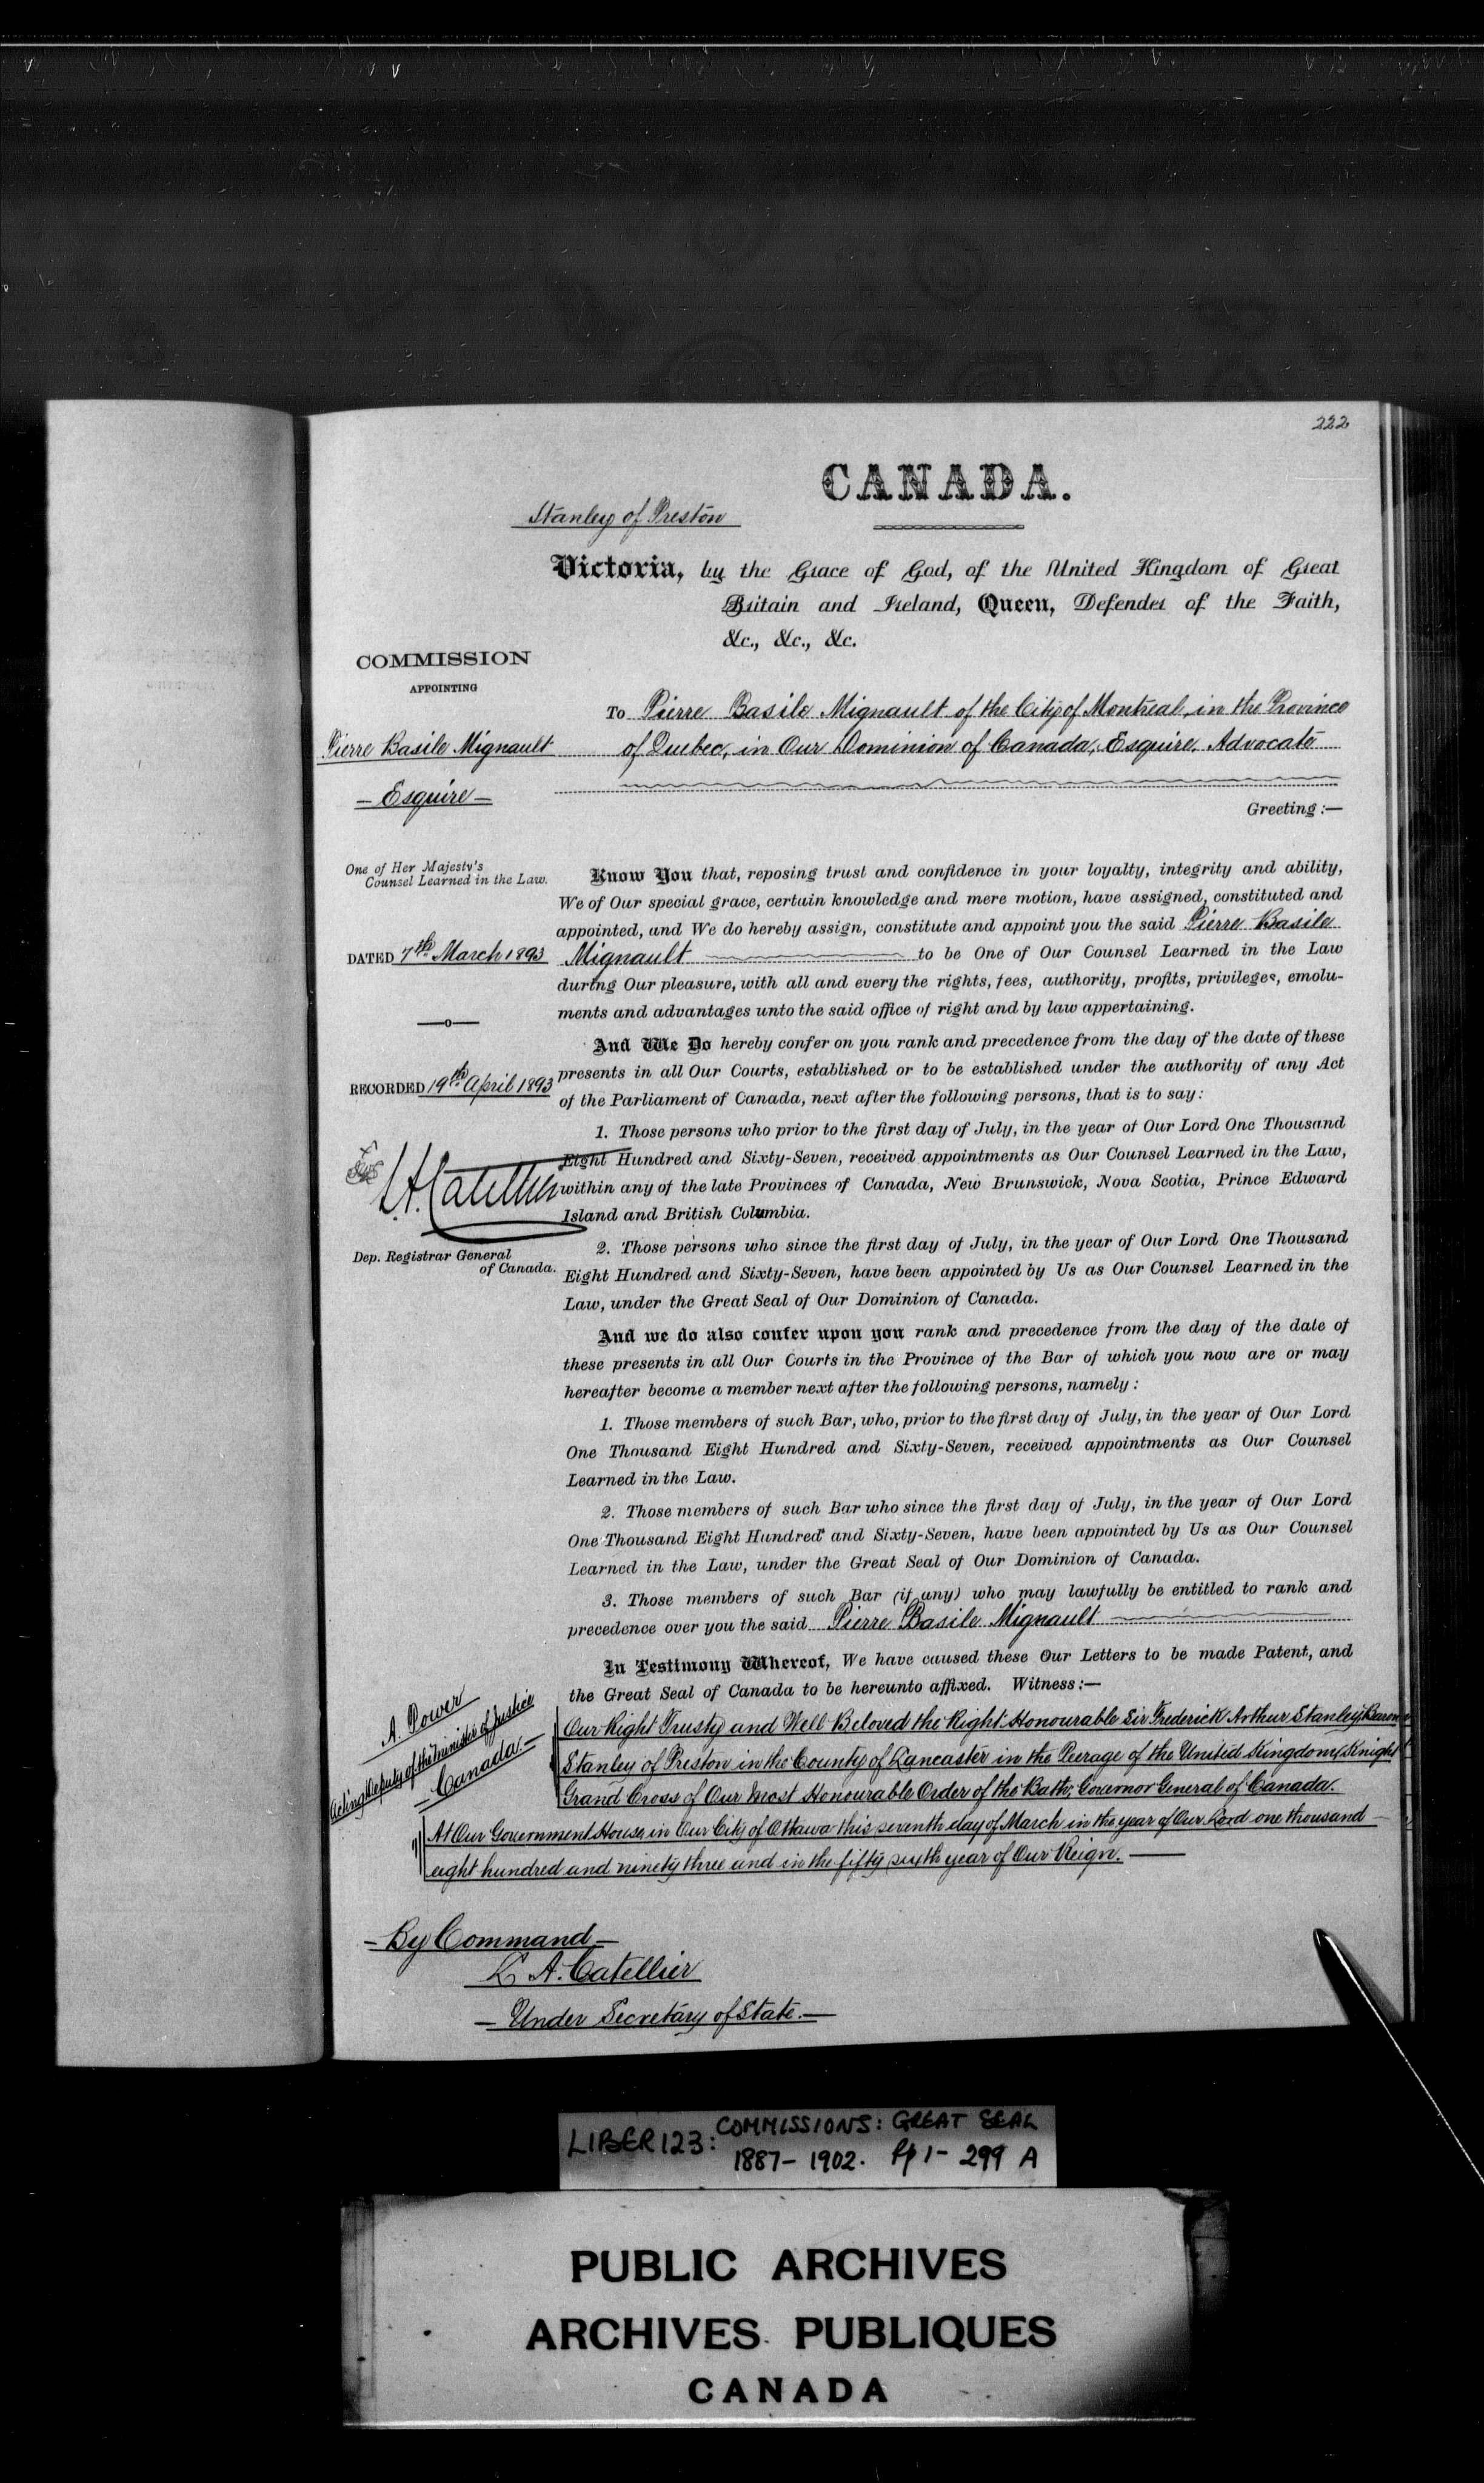 222
CANADA.
Stanley of Preston
Victoria, by the Grace of God, of the United Kingdom of Great
Britain and Ireland, Queen, Defender of the Faith,
&c., &c., &c.
COMMISSION
APPOINTING
Pierre Basile Mignault
— Esquire —
One of Her Majesty's
Counsel Learned in the Law.
DATED 7th March 1893
RECORDED 19th April 1893
L.A. Catellier
Dep. Registrar General
of Canada.
To Pierre Basile Mignault of the City of Montreal, in the Province
of Quebec, in Our Dominion of Canada, Esquire, Advocate
Greeting:—
Know You that, reposing trust and confidence in your loyalty, integrity and ability,
We of Our special grace, certain knowledge and mere motion, have assigned, constituted and
appointed, and We do hereby assign, constitute and appoint you the said Pierre Basile
Mignault to be One of Our Counsel Learned in the Law
during Our pleasure, with all and every the rights, fees, authority, profits, privileges, emolu-
ments and advantages unto the said office of right and by law appertaining.
And We Do hereby confer on you rank and precedence from the day of the date of these
presents in all Our Courts, established or to be established under the authority of any Act
of the Parliament of Canada, next after the following persons, that is to say:
1. Those persons who prior to the first day of July, in the year of Our Lord One Thousand
Eight Hundred and Sixty-Seven, received appointments as Our Counsel Learned in the Law,
within any of the late Provinces of Canada, New Brunswick, Nova Scotia, Prince Edward
Island and British Columbia.
2. Those persons who since the first day of July, in the year of Our Lord One Thousand
Eight Hundred and Sixty-Seven, have been appointed by Us as Our Counsel Learned in the
Law, under the Great Seal of Our Dominion of Canada.
And we do also confer upon you rank and precedence from the day of the date of
these presents in all Our Courts in the Province of the Bar of which you now are or may
hereafter become a member next after the following persons, namely:
1. Those members of such Bar, who, prior to the first day of July, in the year of Our Lord
One Thousand Eight Hundred and Sixty-Seven, received appointments as Our Counsel
Learned in the Law.
2. Those members of such Bar who since the first day of July, in the year of Our Lord
One Thousand Eight Hundred and Sixty-Seven, have been appointed by Us as Our Counsel
Learned in the Law, under the Great Seal of Our Dominion of Canada.
3. Those members of such Bar (if any) who may lawfully be entitled to rank and
precedence over you the said Pierre Basile Mignault
In Testimony Whereof, We have caused these Our Letters to be made Patent, and
the Great Seal of Canada to be hereunto affixed. Witness:—
A. Power
Acting Deputy of the Minister of Justice
— Canada. —
Our Right Trusty and Well Beloved the Right Honourable Sir Frederick Arthur Stanley, Baron
Stanley of Preston in the County of Lancaster in the Peerage of the United Kingdom, Knight
Grand Cross of Our Most Honourable Order of the Bath, Governor General of Canada.
At Our Government House, in Our City of Ottawa this seventh day of March in the year of Our Lord one thousand
eight hundred and ninety three and in the fifty sixth year of Our Reign. —
— By Command —
L A. Catellier
— Under Secretary of State. —
LIBER 123: COMMISSIONS: GREAT SEAL
1887 - 1902. Pp 1 - 299 A
PUBLIC ARCHIVES
ARCHIVES PUBLIQUES
CANADA